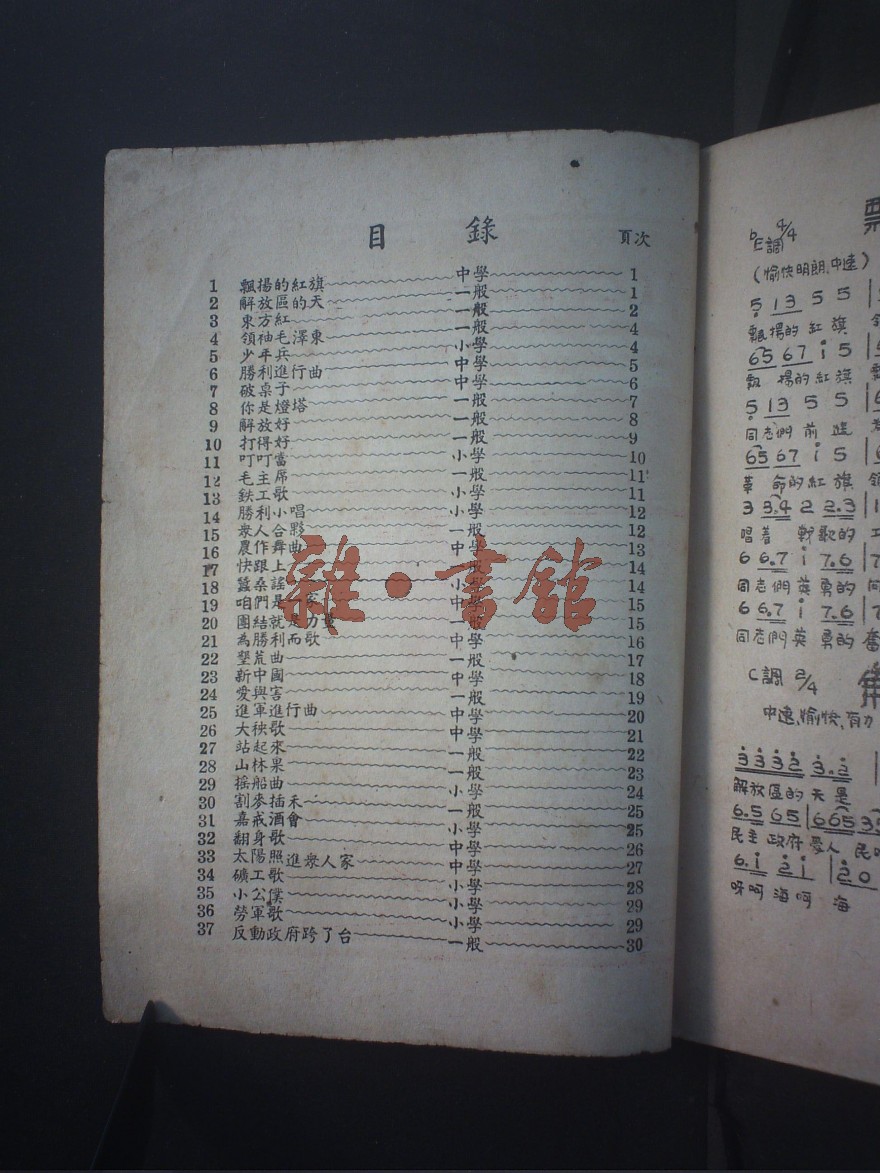 目 錄
頁次
1 飄揚的紅旗 中學 1
2 解放區的天 一般 1
3 東方紅 一般 2
4 領袖毛澤東 一般 4
5 少年兵 小學 4
6 勝利進行曲 中學 5
7 破桌子 中學 6
8 你是燈塔 一般 7
9 解放好 一般 8
10 打得好 一般 9
11 叮叮當 小學 10
12 毛主席 一般 11
13 鉄工歌 小學 11
14 勝利小唱 小學 12
15 衆人合夥 一般 12
16 農作舞曲 中學 13
17 快跟上 一般 14
18 蠶桑謠 小學 14
19 咱們是一家 中學 15
20 團結就是力量 一般 15
21 為勝利而歌 中學 16
22 墾荒曲 一般 17
23 新中國 中學 18
24 愛與害 一般 19
25 進軍進行曲 中學 20
26 大秧歌 中學 21
27 站起來 一般 22
28 山林果 一般 23
29 摇船曲 小學 24
30 割麥插禾 一般 25
31 嘉戒酒會 小學 25
32 翻身歌 中學 26
33 太陽照進衆人家 中學 27
34 礦工歌 小學 28
35 小公僕 小學 29
36 勞軍歌 小學 29
37 反動政府跨了台 一般 30
雜·書館
飄
bE調 4/4
(愉快明朗、中速)
5 13 5 5
飄揚的紅旗
65 67 i 5
飄揚的紅旗
5 13 5 5
同志們前進
65 67 i 5
革命的紅旗
3 3.4 2 2.3
唱着 歌的
6 6.7 i 7.6
同志們英勇的
6 6.7 i 7.6
同志們英勇的奮
C調 2/4
中速、愉快、有力
3 3 3 2 3.2
解放區的天是
6.5 65 665
民主政府愛人民
6.i 2i 20
呀呵海呵 海